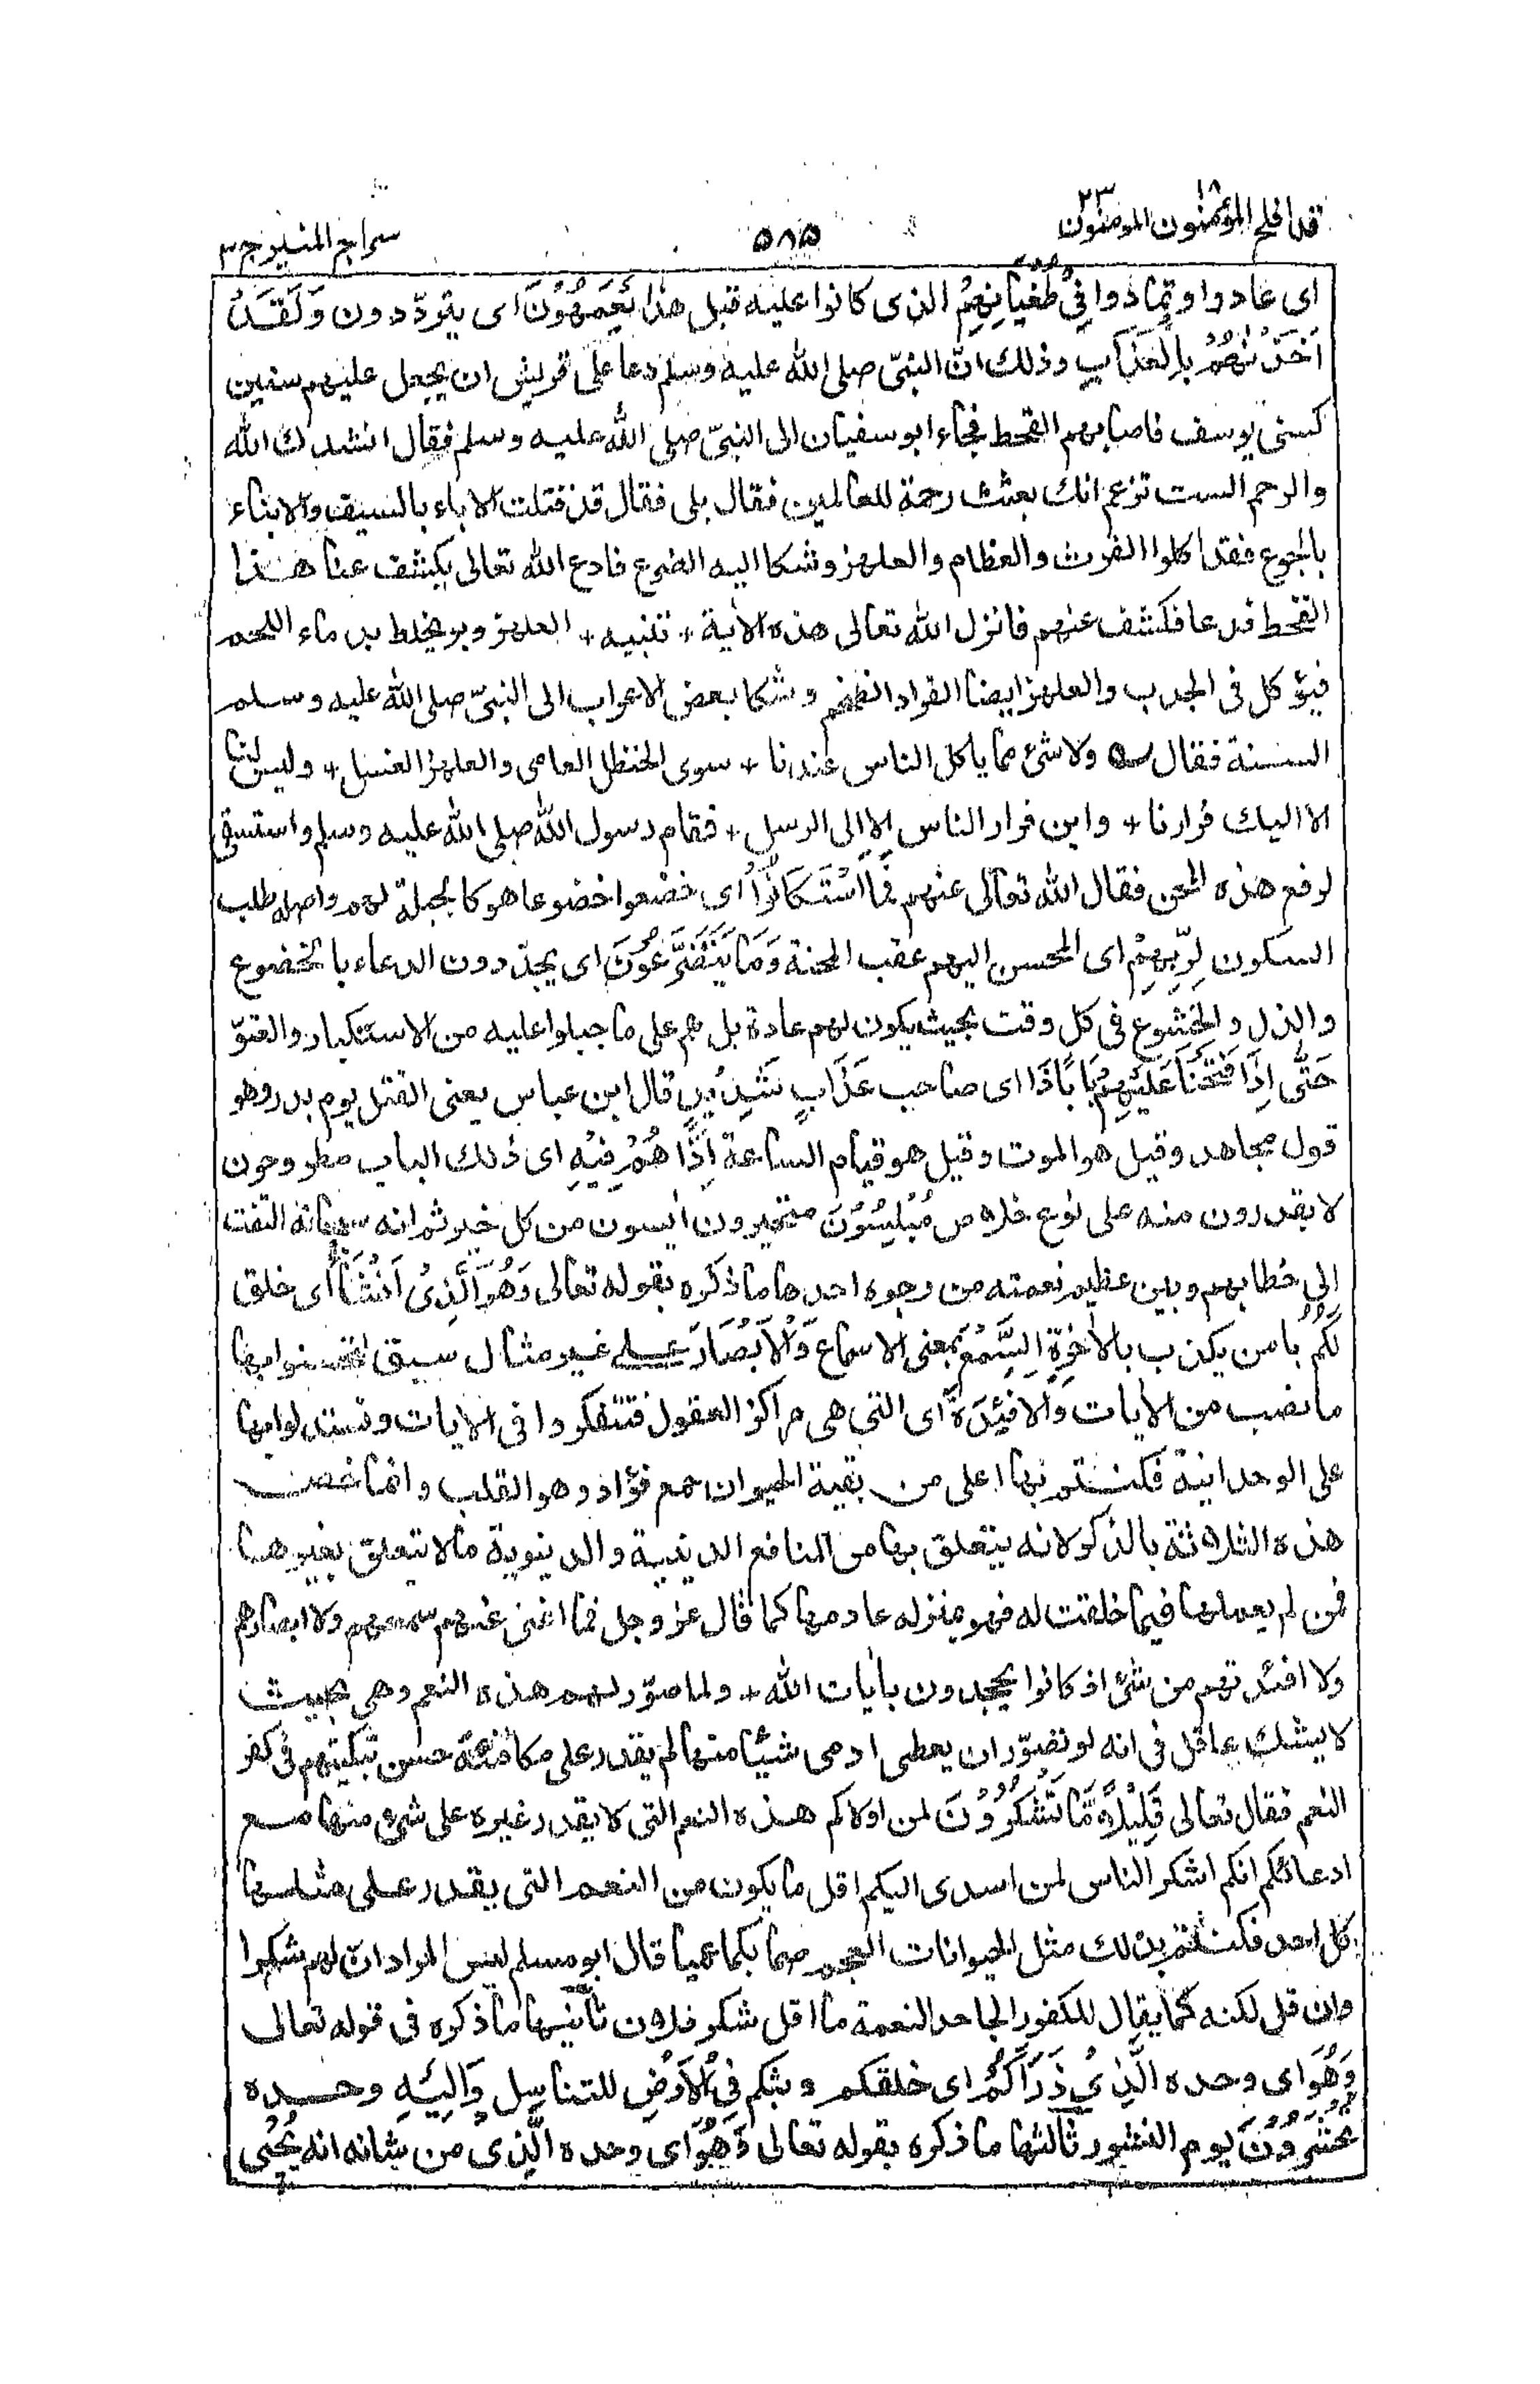 قد افلح ١٨ المؤمنون المومنون ٢٣
٥٨٥
سراج المنير ج ٣
اى عادوا وتمادوا فِىْ طُغْيَانِهِمْ الذى كانوا عليه قبل هذا يَعْمَهُوْنَ اى يتردّدون وَلَقَدْ
اَخَذْنٰهُمْ بِالْعَذَابِ وذلك انّ النبىّ صلى الله عليه وسلم دعا على قريش ان يجعل عليهم سنين
كسنى يوسف فاصابهم القحط فجاء ابوسفيان الى النبىّ صلى الله عليه وسلم فقال انشدك الله
والرحم الست تزعم انك بعثت رحمة للعالمين فقال بلى فقال قد قتلت الاباء بالسيف والابناء
بالجوع فقد اكلوا الفرث والعظام والعلهز وشكا اليه الضرع فادع الله تعالى يكشف عنا هذا
القحط فدعا فكشف عنهم فانزل الله تعالى هذه الاٰية + تنبيه + العلهز وبر يخلط بدماء اللحم
فيؤكل فى الجدب والعلهز ايضا القراد الضخم وشكا بعض الاعراب الى النبىّ صلى الله عليه وسلم
السنة فقال ولا شئ مما ياكل الناس عندنا + سوى الحنظل العامى والعلهز الغسل + وليس لنا
الا اليك فرارنا + واين فرار الناس الا الى الرسل + فقام رسول الله صلى الله عليه وسلم واستسقى
لرفع هذه المحن فقال الله تعالى عنهم فَمَا اسْتَكَانُوْا اى خضعوا خضوعا هو كالجبلة لهم واصله طلب
السكون لِرَبِّهِمْ اى المحسن اليهم عقب المحنة وَمَا يَتَضَرَّعُوْنَ اى يجدّدون الدعاء بالخضوع
والذل والخشوع فى كل وقت بحيث يكون لهم عادة بل هم على ما جبلوا عليه من الاستكبار والعتوّ
حَتّٰى اِذَا فَتَحْنَا عَلَيْهِمْ بَابًا ذَا اى صاحب عَذَابٍ شَدِيْدٍ قال ابن عباس يعنى القتل يوم بدر وهو
قول مجاهد وقيل هو الموت وقيل هو قيام الساعة اِذَا هُمْ فِيْهِ اى ذلك الباب مطروحون
لا يقدرون منه على نوع خلاص مُبْلِسُوْنَ متحيرون اٰيسون من كل خير ثم انه سبحانه التفت
الى خطابهم وبين عظيم نعمته من وجوه احدها ما ذكره بقوله تعالى وَهُوَ الَّذِىْ اَنْشَاَ اى خلق
لَكُمْ يا من يكذب بالاٰخرة السَّمْعَ بمعنى الاسماع وَالْاَبْصَارَ على غير مثال سبق لتحسنوا بها
ما نصب من الاٰيات وَالْاَفْئِدَةَ اى التى هى مراكز العقول فتتفكروا فى الاٰيات وتستدلوا بها
على الوحدانية فكنتم بها اعلى من بقية الحيوان جمع فؤاد وهو القلب وانما خصت
هذه الثلاثة بالذكر لانه يتعلق بها من المنافع الدينية والدينوية ما لا يتعلق بغيرها
فمن لم يعملها فيما خلقت له فهو بمنزله عادمها كما قال عز وجل فما اغنى عنهم سمعهم ولا ابصارهم
ولا افئدتهم من شئ اذ كانوا يجحدون باٰيات الله + ولما صوّر لهم هذه النعم وهى بحيث
لا يشك عاقل فى انه لو تصوّر ان يعطى ادمى شيئا منها لم يقدر على مكافئة حسن تبكيتهم فى كفر
النعم فقال تعالى قَلِيْلًا مَّا تَشْكُرُوْنَ لمن اولاكم هذه النعم التى لا يقدر غيره على شىء منها مع
ادعائكم انكم اشكر الناس لمن اسدى اليكم اقل ما يكون من النعم التى يقدر على مثلها
كل احد فكنتم بذلك مثل الحيوانات العجم صما بكما عميا قال ابو مسلم ليس المراد ان لهم شكرا
وان قل لكنه كما يقال للكفور الجاحد النعمة ما اقل شكر فلان ثانيها ما ذكره فى قوله تعالى
وَهُوَ اى وحده الَّذِىْ ذَرَاَكُمْ اى خلقكم وبثكم فِى الْاَرْضِ للتناسل وَاِلَيْهِ وحده
تُحْشَرُوْنَ يوم النشور ثالثها ما ذكره بقوله تعالى وَهُوَ اى وحده الَّذِىْ من شانه انه يُحْيِى